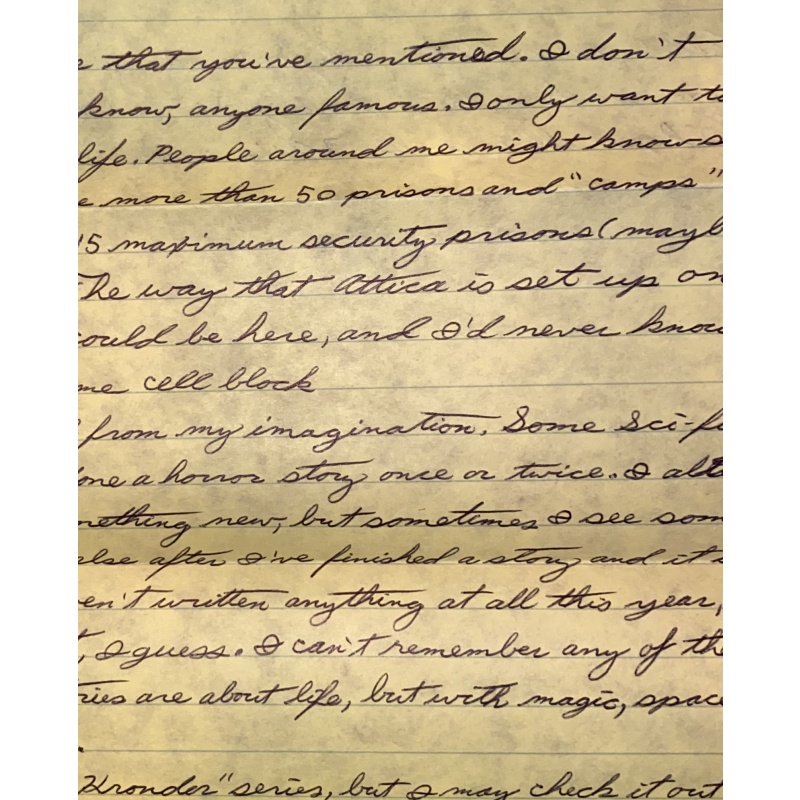 that you've mentioned. I don't
know, anyone famous. I only want to
life. People around me might know s
e more than 50 prisons and "camps"
15 maximum security prisons (mayb
The way that Attica is set up on
ould be here, and I'd never know
me cell block
from my imagination. Some Sci-fi
one a horror story once or twice. I alt
mething new, but sometimes I see som
else after I've finished a story and it
en't written anything at all this year,
, I guess. I can't remember any of the
ries are about life, but with magic, space
Kronder" series, but I may check it out